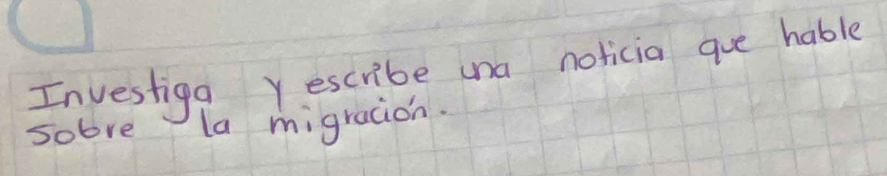 Investiga y escribe una noticia que hable
sobre la migración.